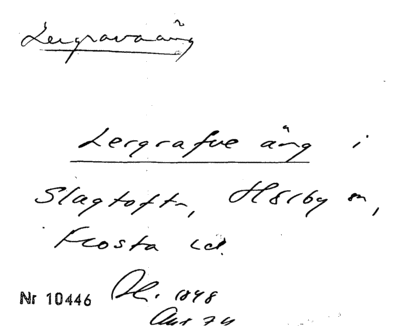 Lergravaäng
Lergrafve äng i
Slagtoftr, Hörby sn,
Frosta hd.
Nr 10446 Ok. 1848
Akt 74